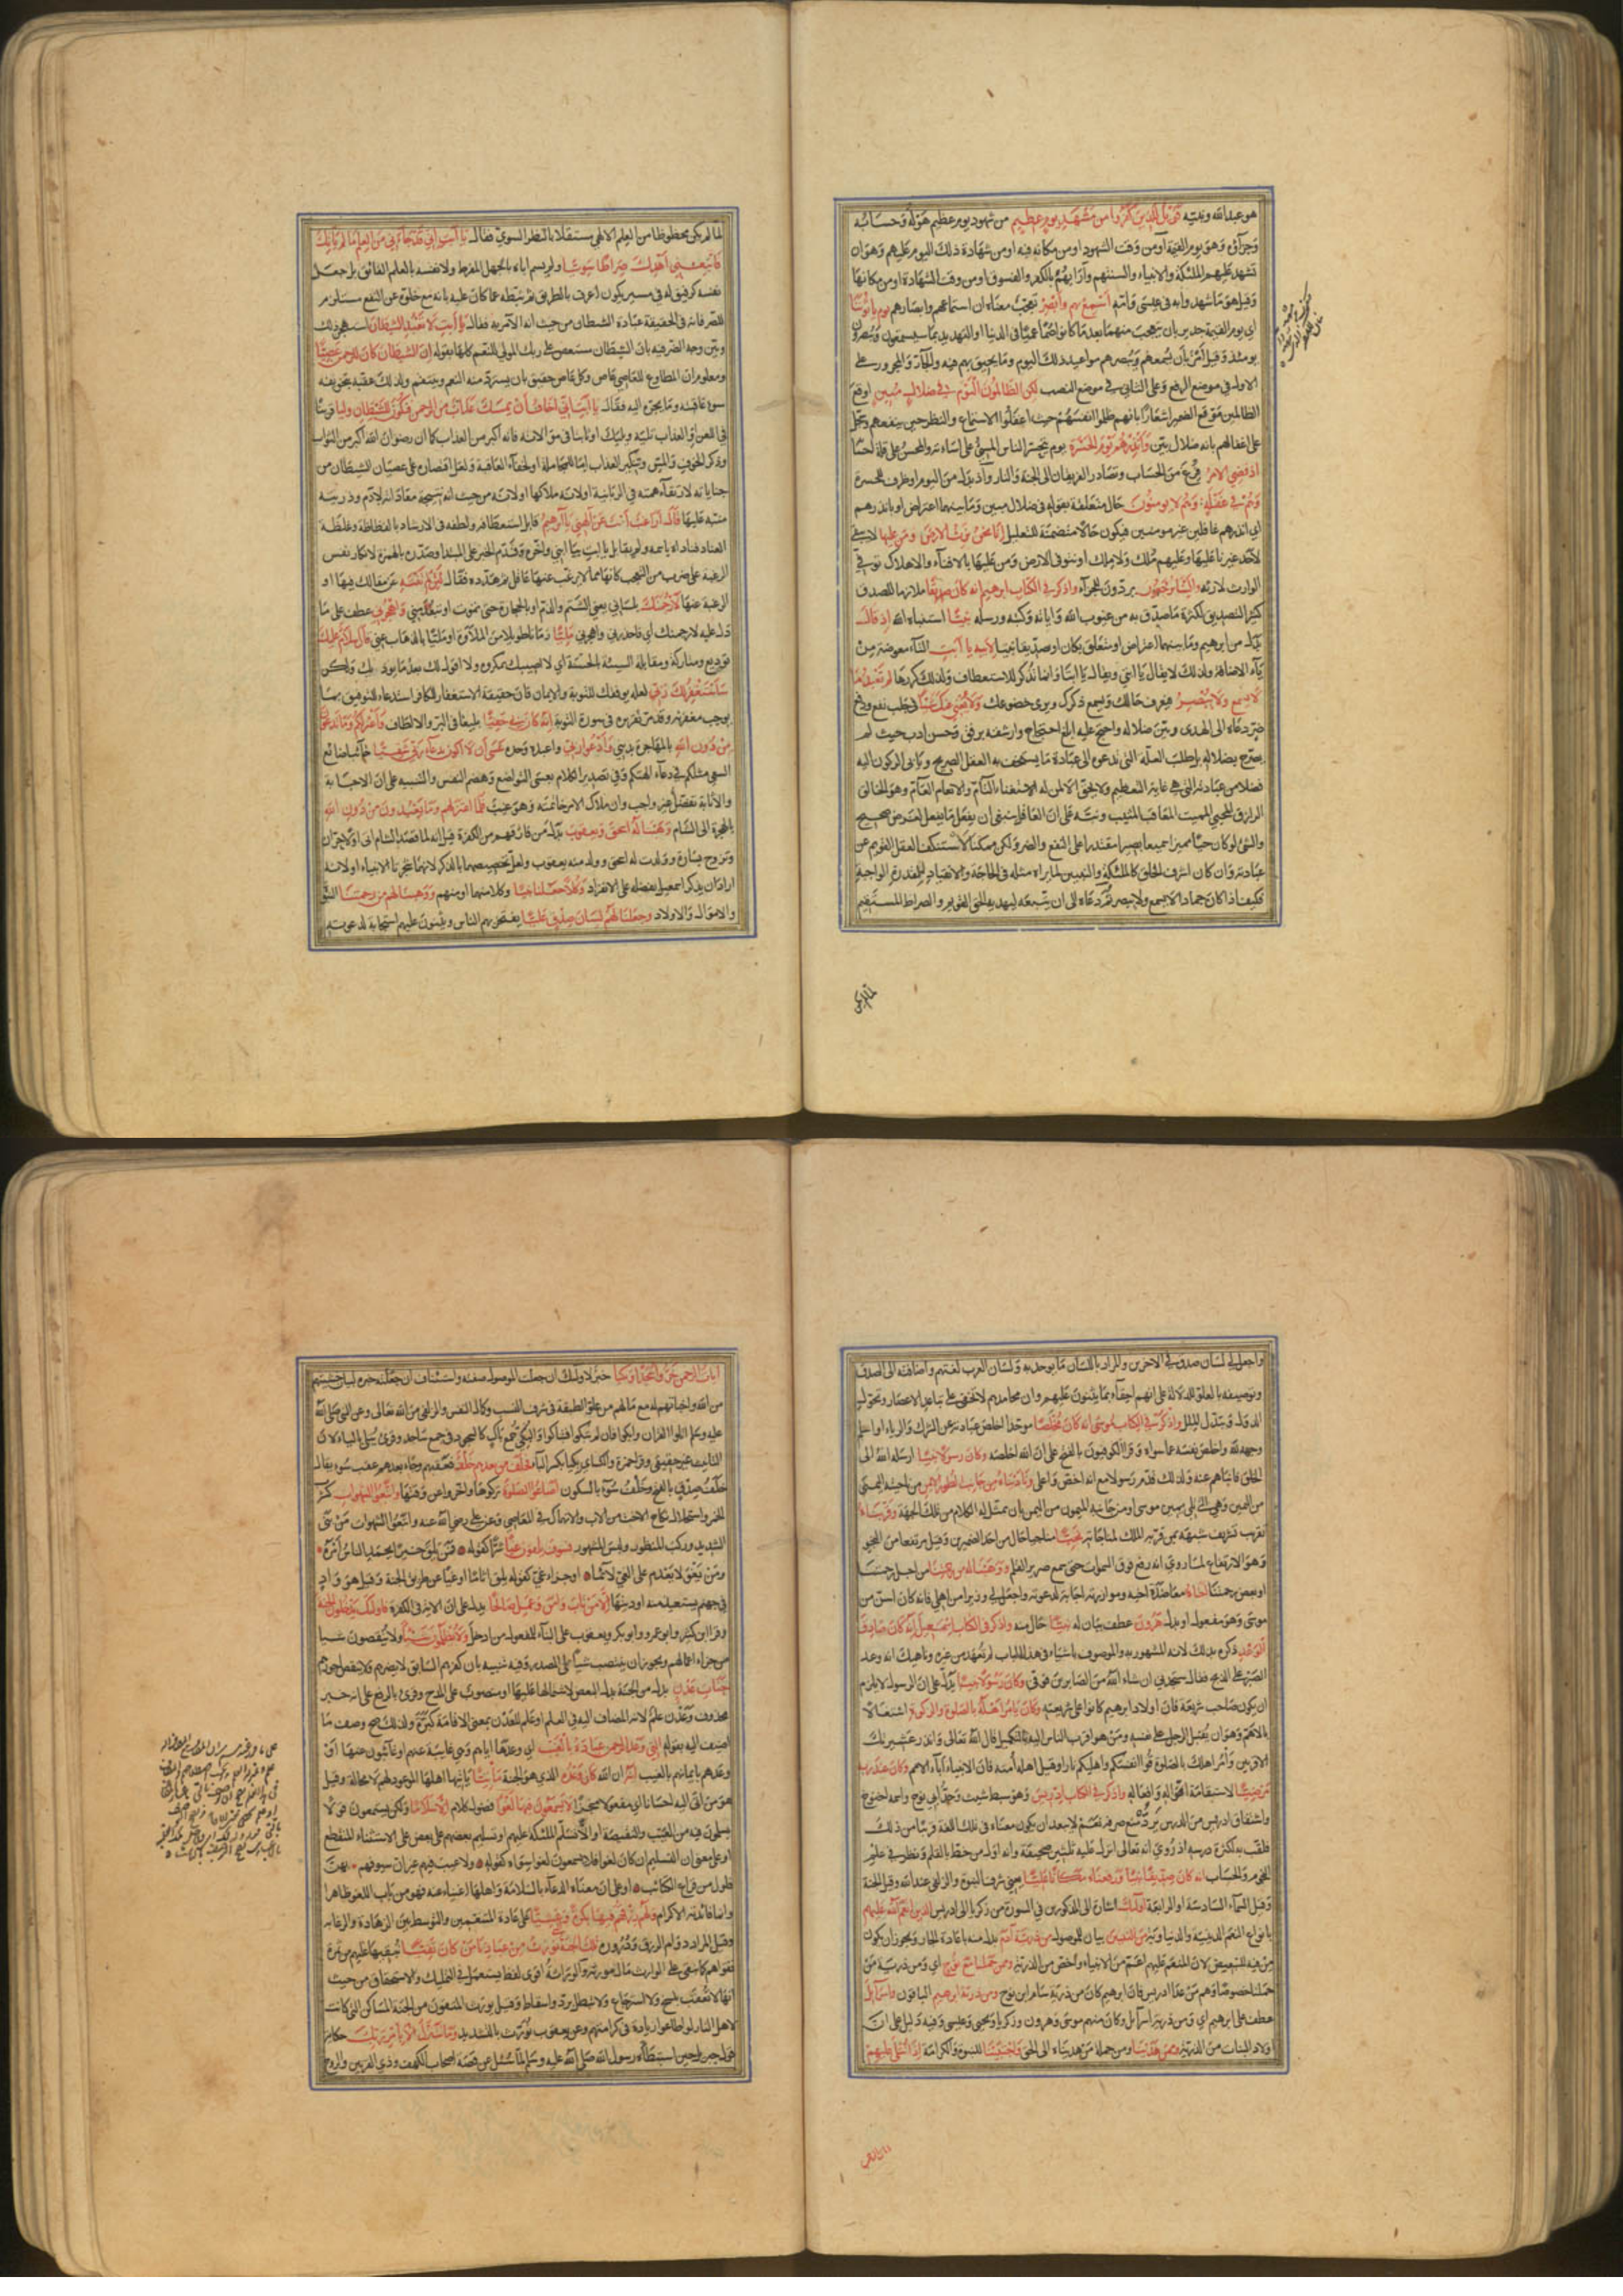 هو عبد الله ونبيّه فويل للذين كفروا من مشهد يوم عظيم من شهود يوم عظيم هوله وحسابه
وجزآؤه وهو يوم القيمة او من وقت الشهود او من مكانه فيه او من شهادة ذلك اليوم عليهم وهو ان
تشهد عليهم الملئكة والانبياء والسنتهم وآرابهم بالكفر والفسوق او من وقت الشهادة او من مكانها
وقيل هو ما شهد وابه في عيسى وامّه أسمع بهم وأبصر تعجّب معناه ان اسماعهم وابصارهم يوم يأتوننا
اي يوم القيمة جدير بان يتعجب منهما بعد ما كانوا صمّا عميا في الدنيا او التهديد بما سيسمعون ويبصرون
يومئذ وقيل أمر بأن يسمعهم ويبصرهم مواعيد ذلك اليوم وما يحيق بهم فيه والجارّ والمجرور على
الاول في موضع الرفع وعلى الثاني في موضع النصب لكن الظالمون اليوم في ضلال مبين اوقع
الظالمين موقع الضمير اشعارا بانهم ظلموا انفسهم حيث اغفلوا الاستماع والنظر حين ينفعهم وسجّل
على اغفالهم بانه ضلال بيّن وأنذرهم يوم الحسرة يوم يتحسّر الناس المسئ على اساءته والمحسن على قلة احسانه
اذ قضي الامر فرغ من الحساب وتصادر الفريقان الى الجنة والنار واذ بدل من اليوم او ظرف للحسرة
وهم في غفلة وهم لا يومنون حال متعلقة بقوله في ضلال مبين وما بينهما اعتراض او بانذرهم
اي انذرهم غافلين غير مومنين فيكون حالا متضمنة للتعليل إنا نحن نرث الارض ومن عليها لا يبقى
لاحد غيرنا عليها وعليهم ملك ولا ملك او نتوفى الارض ومن عليها بالافنآء والاهلاك توفي
الوارث لارثه والينا يرجعون يردون للجزآء واذكر في الكتاب ابرهيم انه كان صدّيقا ملازما للصدق
كثير التصديق لكثرة ما صدّق به من غيوب الله واياته وكتبه ورسله نبيّا استنباه الله اذ قال
بدل من ابرهيم وما بينهما اعتراض او متعلق بكان او صدّيقا نبيّا لابيه يا أبت التآء معوضة من
يآء الاضافة ولذلك لا يقال يا ابتي ويقال يا ابتا وانما تذكر للاستعطاف ولذلك كررها لم تعبد ما
لا يسمع ولا يبصر فيعرف حالك ويسمع ذكرك ويرى خضوعك ولا يغني عنك شيئا في جلب نفع ودفع
ضرّ دعاه الى الهدى وبيّن ضلاله واحتج عليه ابلغ احتجاج وارشقه برفق وحسن ادب حيث لم
يصرّح بضلاله بل طلب العلّة التي تدعوه الى عبادة ما يستخف به العقل الصريح ويأبى الركون اليه
فضلا من عبادته التي هي غاية التعظيم ولا يحق الا لمن له الاستغناء التآم والانعام العآم وهو الخالق
الرازق المحيي المميت المعاقب المثيب ونبّه على ان العاقل ينبغي ان يفعل ما يفعل لغرض صحيح
والشئ لو كان حيّا مميزا سميعا بصيرا مقتدرا على النفع والضر ولكن ممكنا لاستنكف العقل القويم عن
عبادته وان كان اشرف الخلق كالملئكة والنبيين لما يراه مثله في الحاجة والانقياد للقدرة الواجبة
فكيف اذا كان جمادا لا يسمع ولا يبصر ثم دعاه الى ان يتبعه ليهديه الحق القويم والصراط المستقيم
لما لم يكن
لما لم يكن محظوظا من العلم الالهي مستقلا بالنظر السويّ فقال يا أبت إني قد جاءني من العلم ما لم يأتك
فاتبعني أهدك صراطا سويّا ولم يسم اباه بالجهل المفرط ولا نفسه بالعلم الفائق بل جعل
نفسه كرفيق له في مسير يكون اعرف بالطريق ثم ثبّطه عما كان عليه بانه مع خلوّه عن النفع مستلزم
للضر فانه في الحقيقة عبادة الشيطان من حيث انه الآمر به فقال يا أبت لا تعبد الشيطان استهجن ذلك
وبيّن وجه الضر فيه بان الشيطان مستعص على ربك المولي للنعم كلها بقوله إن الشيطان كان للرحمن عصيّا
ومعلوم ان المطاوع للعاصي عاص وكل عاص حقيق بان يسترد منه النعم وينتقم ولذلك عقبه بتخويفه
سوء عاقبته وما يجرّه اليه فقال يا أبت إني أخاف أن يمسك عذاب من الرحمن فتكون للشيطان وليا قرينا
في اللعن او العذاب تليه ويليك او ثابتا في موالاته فانه اكبر من العذاب كما ان رضوان الله اكبر من الثواب
وذكر الخوف والمسّ وتنكير العذاب امّا للمجاملة او لخفآء العاقبة ولعل اقتصاره على عصيان الشيطان من
جناياته لارتقآء همته في الربّانية او لانه ملاكها او لانه من حيث انه نتيجة معاداته لآدم وذريته
منبّه عليها قال أراغب أنت عن آلهتي يا ابرهيم قابل استعطافه ولطفه في الارشاد بالفظاظة وغلظة
العناد فناداه باسمه ولم يقابل يا ابت بيا ابني واخّره وقدّم الخبر على المبتدا وصدّره بالهمزة لانكار نفس
الرغبة على ضرب من التعجب كانها مما لا يرغب عنها عاقل ثم هدّده فقال لئن لم تنته عن مقالك فيها او
الرغبة عنها لأرجمنك بلساني يعني الشتم والذم او بالحجارة حتى تموت او تبعد مني واهجرني عطف على ما
دل عليه لارجمنك اي فاحذرني واهجرني مليّا زمانا طويلا من الملاوة او مليّا بالذهاب عني قال سلام عليك
توديع ومتاركة ومقابلة السيئة بالحسنة اي لا اصيبك بمكروه ولا اقول لك بعد ما يوذيك ولكن
سأستغفر لك ربي لعله يوفقك للتوبة والايمان فان حقيقة الاستغفار للكافر استدعاء للتوفيق بما
يوجب مغفرته وقد مرّ تقريره في سورة التوبة إنه كان بي حفيّا بليغا في البرّ والالطاف وأعتزلكم وما تدعون
من دون الله بالمهاجرة بديني وأدعو ربي واعبده وحده عسى أن لا أكون بدعآء ربي شقيّا خآئبا ضائع
السعي مثلكم في دعآء الهتكم وفي تصدير الكلام بعسى التواضع وهضم النفس والتنبيه على ان الاجابة
والاثابة تفضّل غير واجب وان ملاك الامر خاتمته وهو غيب فلما اعتزلهم وما يعبدون من دون الله
بالهجرة الى الشام وهبنا له اسحق ويعقوب بدل من فارقهم من الكفرة قيل انه لما قصد الشام اتى اولا حرّان
وتزوج بسارة وولدت له اسحق وولد منه يعقوب ولعل تخصيصهما بالذكر لانهما شجرتا الانبياء او لانه
اراد ان يذكر اسمعيل بفضله على الانفراد وكلا جعلنا نبيّا وكلا منهما او منهم ووهبنا لهم من رحمتنا النبوّة
والاموال والاولاد وجعلنا لهم لسان صدق عليّا يفتخر بهم الناس ويثنون عليهم استجابة لدعوته
واجعل لي لسان صدق في الاخرين والمراد باللسان ما يوجد به ولسان العرب لغتهم واضافته الى الصدق
وتوصيفه بالعلوّ للدلالة على انهم احقآء بما يثنون عليهم وان محامدهم لا تخفى على تباعد الاعصار وتحوّل
الدول وتبدّل الملل واذكر في الكتاب موسى انه كان مخلصا موحّدا اخلص عبادته عن الشرك والرياء او اسلم
وجهه لله واخلص نفسه عما سواه وقرأ الكوفيون بالفتح على ان الله اخلصه وكان رسولا نبيّا ارسله الله الى
الخلق فانبأهم عنه ولذلك قدّم رسولا مع انه اخصّ واعلى وناديناه من جانب الطور الايمن من ناحيته اليمنى
من اليمين وهي التي تلي يمين موسى او من جانبه الميمون من اليمن بان تمثّل له الكلام من تلك الجهة وقربناه
تقريب تشريف شبّهه بمن قرّبه الملك لمناجاته نجيّا مناجيا حال من احد الضميرين وقيل مرتفعا من النجو
وهو الارتفاع لما روي انه رفع فوق السموات حتى سمع صرير القلم ووهبنا له من رحمتنا من اجل رحمتنا
او بعض رحمتنا اخاه معاضدة اخيه وموازرته اجابة لدعوته واجعل لي وزيرا من اهلي فانه كان اسنّ من
موسى وهو مفعول او بدل هرون عطف بيان له نبيّا حال منه واذكر في الكتاب اسمعيل إنه كان صادق
الوعد ذكره بذلك لانه المشهور به والموصوف باشياء في هذا الباب لم تعهد من غيره وناهيك انه وعد
الصبر على الذبح فقال ستجدني ان شاء الله من الصابرين فوفى وكان رسولا نبيّا يدل على ان الرسول لا يلزم
ان يكون صاحب شريعة فان اولاد ابرهيم كانوا على شريعته وكان يأمر أهله بالصلوة والزكوة اشتغالا
بالاهم وهو ان يقبل الرجل على نفسه ومن هو اقرب الناس اليه بالتكميل قال الله تعالى وانذر عشيرتك
الاقربين وأمر اهلك بالصلوة قوا انفسكم واهليكم نارا وقيل اهله أمته فان الانبياء آبآء الامم وكان عند ربه
مرضيّا لاستقامة اقواله وافعاله واذكر في الكتاب ادريس وهو سبط شيث وجدّ أبي نوح واسمه اخنوخ
واشتقاق ادريس من الدرس يردّه منع صرفه نعم لا يبعد ان يكون معناه في تلك اللغة قريبا من ذلك
فلقب به لكثرة درسه اذ روي انه تعالى انزل عليه ثلثين صحيفة وانه اول من خط بالقلم ونظر في علم
النجوم والحساب انه كان صدّيقا نبيّا ورفعناه مكانا عليّا يعني شرف النبوة والزلفى عند الله وقيل الجنة
وقيل السمآء السادسة او الرابعة اولئك اشارة الى المذكورين في السورة من زكريا الى ادريس الذين انعم الله عليهم
بانواع النعم الدينية والدنيوية من النبيين بيان للموصول من ذرية آدم بدل منه باعادة الجار ويجوز ان يكون
من فيه للتبعيض لان المنعم عليهم اعمّ من الانبياء واخصّ من الذرية وممن حملنا مع نوح اي ومن ذرية من
حملنا خصوصا وهم من عدا ادريس فان ابرهيم كان من ذرية سام ابن نوح ومن ذرية ابرهيم الباقون واسرآئل
عطف على ابرهيم اي ومن ذرية اسرآئل وكان منهم موسى وهرون وزكريا ويحيى وعيسى وفيه دليل على ان
ولاد البنات من الذرية وممن هدينا ومن جملة من هديناه الى الحق واجتبينا للنبوة والكرامة إذا تتلى عليهم
آيات الرحمن خرّوا سجّدا وبكيّا خبر لاولئك ان جعلت الموصول صفته واستيناف ان جعلته خبره لبيان خشيتهم
من الله واخباتهم له مع مالهم من علوّ الطبقة في شرف النسب وكمال النفس والزلفى من الله تعالى وعن النبي صلى الله
عليه وسلم اتلوا القران وابكوا فان لم تبكوا فتباكوا والبكيّ جمع باك كالسجود في جمع ساجد وقرئ يتلى بالياء لان
التانيث غير حقيقي وقرأ حمزة والكسائي بكيا بكسر البآء فخلف من بعدهم خلف فعقبهم وجآء بعدهم عقب سوء يقال
خلف صدق بالفتح وخلف سوء بالسكون اضاعوا الصلوة تركوها او اخّروها عن وقتها واتبعوا الشهوات كشرب
الخمر واستحلال نكاح الاخت من الاب والانهماك في المعاصي وعن علي رضي الله عنه واتبعوا الشهوات من بنى
الشديد وركب المنظور ولبس المشهور فسوف يلقون غيّا شرّا كقوله فمن يلق خيرا يحمد الناس أمره
ومن يغو لا يعدم على الغيّ لآئما او جزاء غيّ كقوله يلق اثاما او غيّا عن طريق الجنة وقيل هو واد
في جهنم يستعيذ منه اوديتها إلا من تاب وامن وعمل صالحا يدل على ان الآية في الكفرة فاولئك يدخلون الجنة
وقرأ ابن كثير وابو عمرو وابو بكر ويعقوب على البنآء للمفعول من ادخل ولا يظلمون شيئا ولا ينقصون شيئا
من جزاء اعمالهم ويجوز ان ينتصب شيئا على المصدر وفيه تنبيه بان كفرهم السابق لا يضرهم ولا ينقص اجورهم
جنات عدن بدل من الجنة بدل البعض لاشتمالها عليها او منصوب على المدح وقرئ بالرفع على انه خبر
محذوف وعدن علم لانه المضاف اليه في العلم او علم للعدن بمعنى الاقامة كبرّة ولذلك صح وصف ما
اضيف اليه بقوله التي وعد الرحمن عباده بالغيب اي وعدها اياهم وهي غايبة عنهم او غآئبون عنها او
وعدهم بايمانهم بالغيب انه ان الله كان وعده الذي هو الجنة مأتيّا ياتيها اهلها الموعود لهم لا محالة وقيل
هو من اتى اليه احسانا اي مفعولا منجزا لا يسمعون فيها لغوا فضول كلام الا سلاما ولكن يسمعون قولا
يسلمون فيه من العيب والنقيصة او الا تسليم الملئكة عليهم او تسليم بعضهم على بعض على الاستثناء المنقطع
او على معنى ان التسليم ان كان لغوا فلا يسمعون لغوا سواه كقوله ولا عيب فيهم غير ان سيوفهم بهن
فلول من قراع الكتائب او على ان معناه الدعآء بالسلامة واهلها اغنياء عنه فهو من باب اللغو ظاهرا
وانما فائدته الاكرام ولهم رزقهم فيها بكرة وعشيّا على عادة المتنعمين والتوسط بين الزهادة والرغابة
وقيل المراد دوام الرزق ودروره تلك الجنة التي نورث من عبادنا من كان تقيّا نبقيها عليهم من ثمرة
تقواهم كما يبقى على الوارث مال مورثه والوراثة اقوى لفظ يستعمل في التمليك والاستحقاق من حيث
انها لا تعقب بفسخ ولا استرجاع ولا تبطل بردّ واسقاط وقيل يورث المتقون من الجنة المساكن التي كانت
لاهل النار لو اطاعوا زيادة في كرامتهم وعن يعقوب نورّث بالتشديد وما نتنزل إلا بأمر ربك حكاية
قول جبريل حين استبطأه رسول الله صلى الله عليه وسلم لما سئل عن قصة اصحاب الكهف وذي القرنين والروح